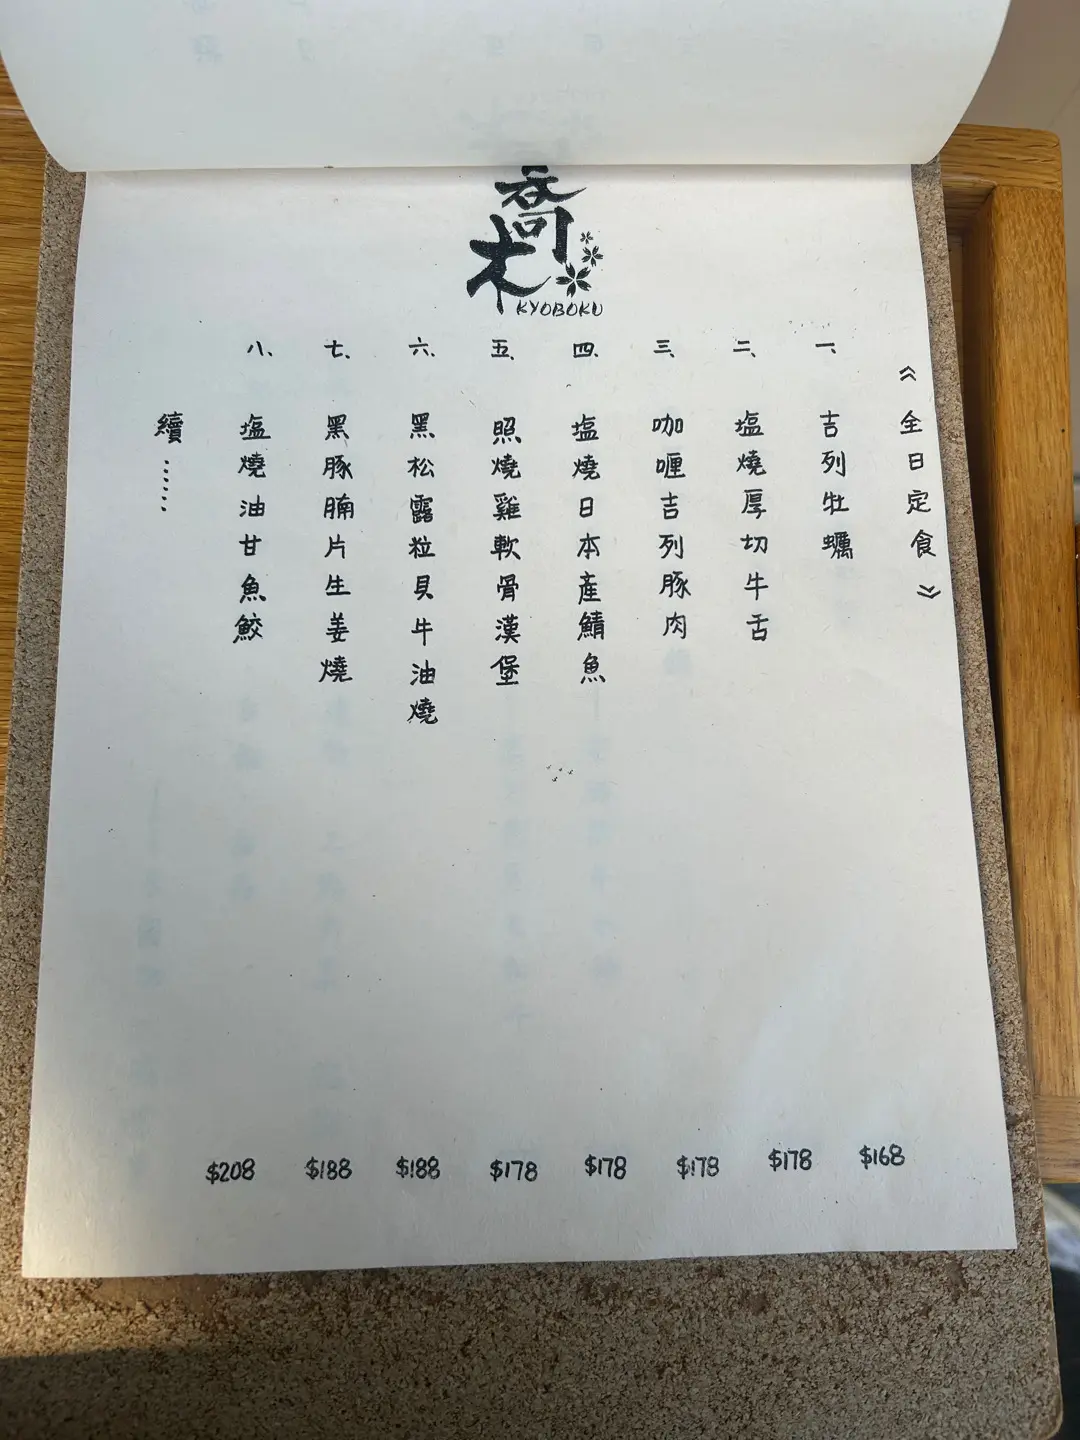 喬木
KYOBOKU
《全日定食》
一、吉列牡蠣 $168
二、塩燒厚切牛舌 $178
三、咖喱吉列豚肉 $178
四、塩燒日本產鯖魚 $178
五、照燒雞軟骨漢堡 $178
六、黑松露粒貝牛油燒 $188
七、黑豚腩片生姜燒 $188
八、塩燒油甘魚鮫 $208
續……